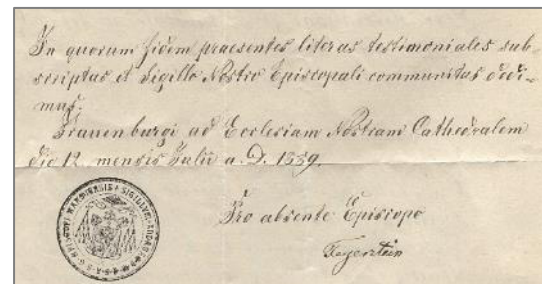 In quorum fidem praesentes literas testimoniales sub-
scriptas et sigillo Nostro Episcopali communitas dedi-
mus.
Frauenburgi ad Ecclesiam Nostram Cathedralem
die 12. mensis Julii a. D. 1889.
Pro absente Episcopo